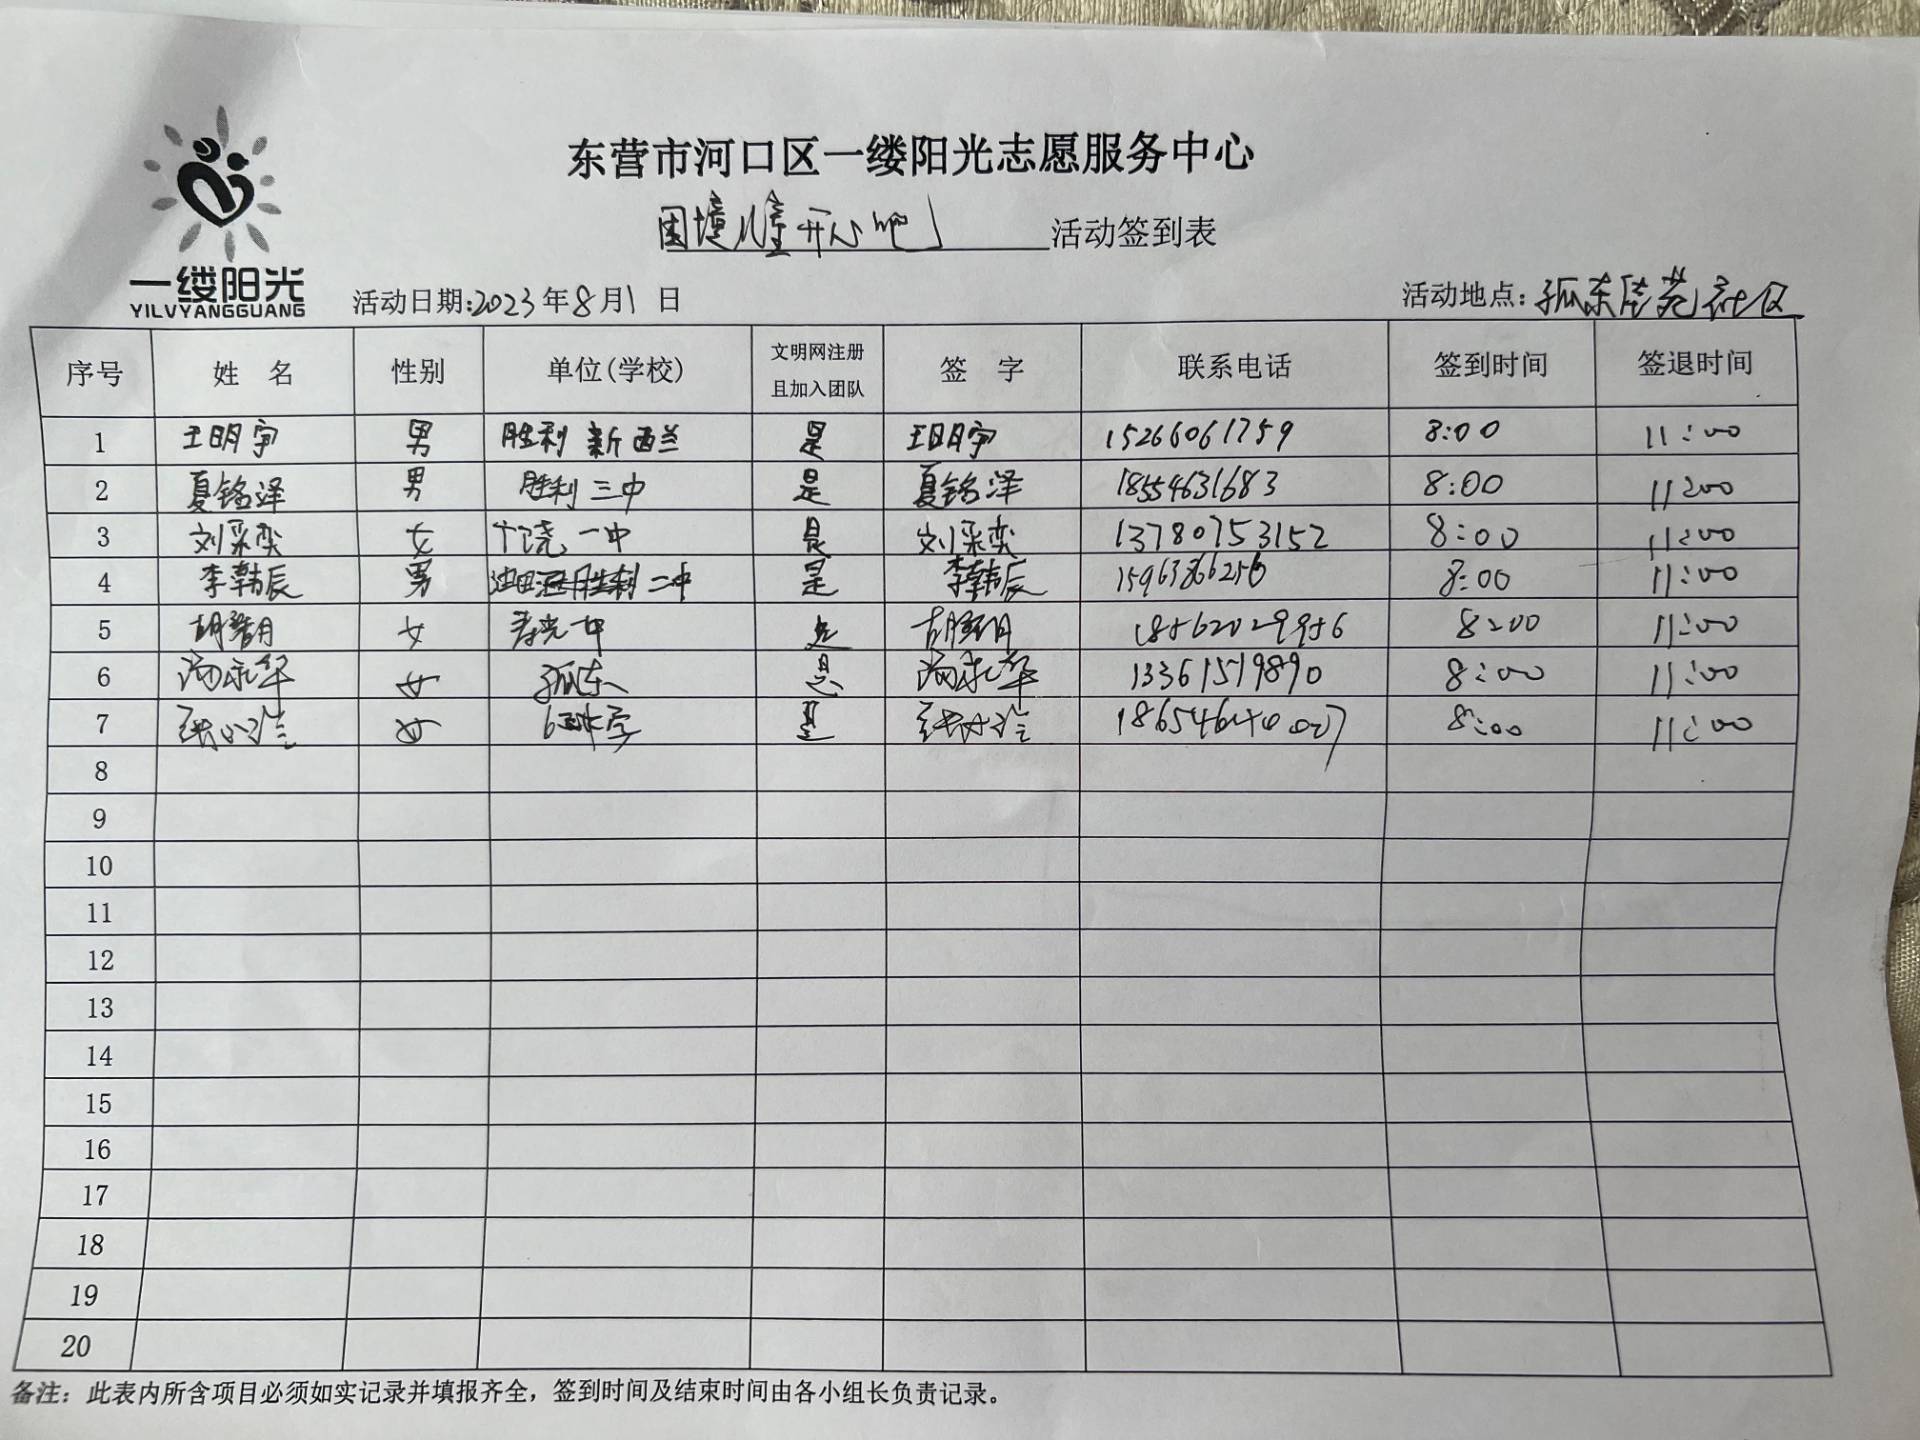 东营市河口区一缕阳光志愿服务中心
困境儿童开心吧 活动签到表
一缕阳光
YILVYANGGUANG
活动日期:2023年8月1日 活动地点:孤东 苑社区
序号 姓名 性别 单位(学校) 文明网注册且加入团队 签字 联系电话 签到时间 签退时间
1 王明宇 男 胜利 新西兰 是 王明宇 15266061759 8:00 11:00
2 夏铭泽 男 胜利三中 是 夏铭泽 18554631683 8:00 11:00
3 刘采奕 女 一中 是 刘采奕 13780753152 8:00 11:00
4 李韩辰 男 二中 是 李韩辰 15963866256 8:00 11:00
5 女 是 18562029956 8:00 11:00
6 女 孤东 是 13361519890 8:00 11:00
7 女 是 8:00 11:00
8
9
10
11
12
13
14
15
16
17
18
19
20
备注：此表内所含项目必须如实记录并填报齐全，签到时间及结束时间由各小组长负责记录。